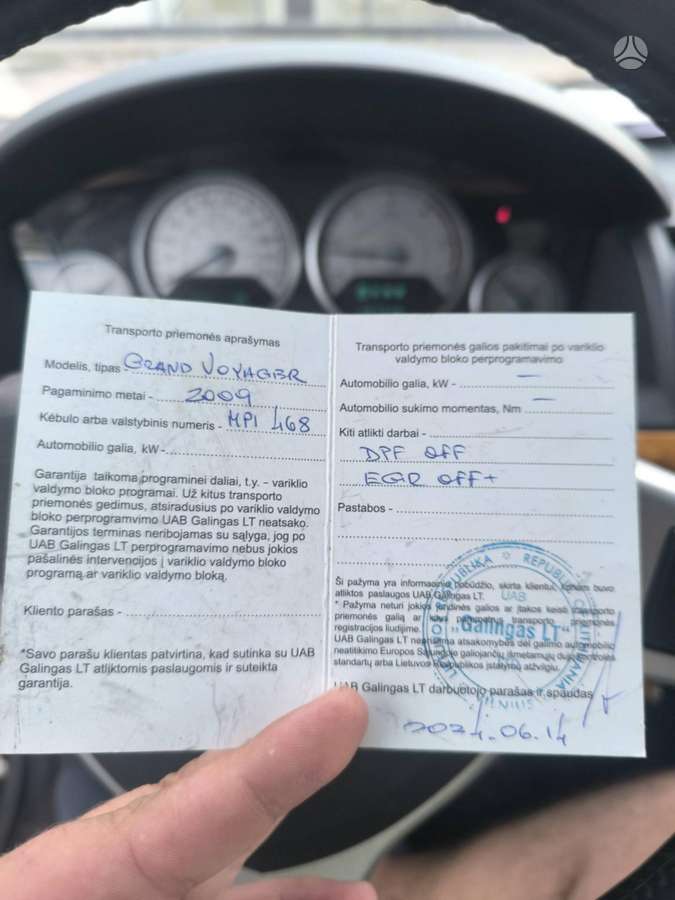 Transporto priemonės aprašymas
Modelis, tipas - GRAND VOYAGER
Pagaminimo metai - 2009
Kėbulo arba valstybinis numeris - MPI 468
Automobilio galia, kW -
Garantija taikoma programinei daliai, t.y. - variklio
valdymo bloko programai. Už kitus transporto
priemonės gedimus, atsiradusius po variklio valdymo
bloko perprogramvimo UAB Galingas LT neatsako.
Garantijos terminas neribojamas su sąlyga, jog po
UAB Galingas LT perprogramavimo nebus jokios
pašalinės intervencijos į variklio valdymo bloko
programą ar variklio valdymo bloką.
Kliento parašas -
*Savo parašu klientas patvirtina, kad sutinka su UAB
Galingas LT atliktomis paslaugomis ir suteikta
garantija.
Transporto priemonės galios pakitimai po variklio
valdymo bloko perprogramavimo
Automobilio galia, kW - –
Automobilio sukimo momentas, Nm –
Kiti atlikti darbai -
DPF OFF
EGR OFF+
Pastabos -
Ši pažyma yra informacinio pobūdžio, skirta klientui, kuriam buvo
atliktos paslaugos UAB Galingas LT.
* Pažyma neturi jokios juridinės galios ar įtakos keisti transporto
priemonės galią ar kitus parametrus transporto priemonės
registracijos liudijime.
UAB Galingas LT neprisiima atsakomybės dėl galimo automobilio
neatitikimo Europos Sąjungoje galiojančių išmetamųjų dujų kontrolės
standartų arba Lietuvos Respublikos įstatymų atžvilgiu.
UAB Galingas LT darbuotojo parašas ir spaudas
LIETUVOS RESPUBLIKA REPUBLIC LITHUANIA
UAB
„Galingas LT"
VILNIUS
2024.06.14